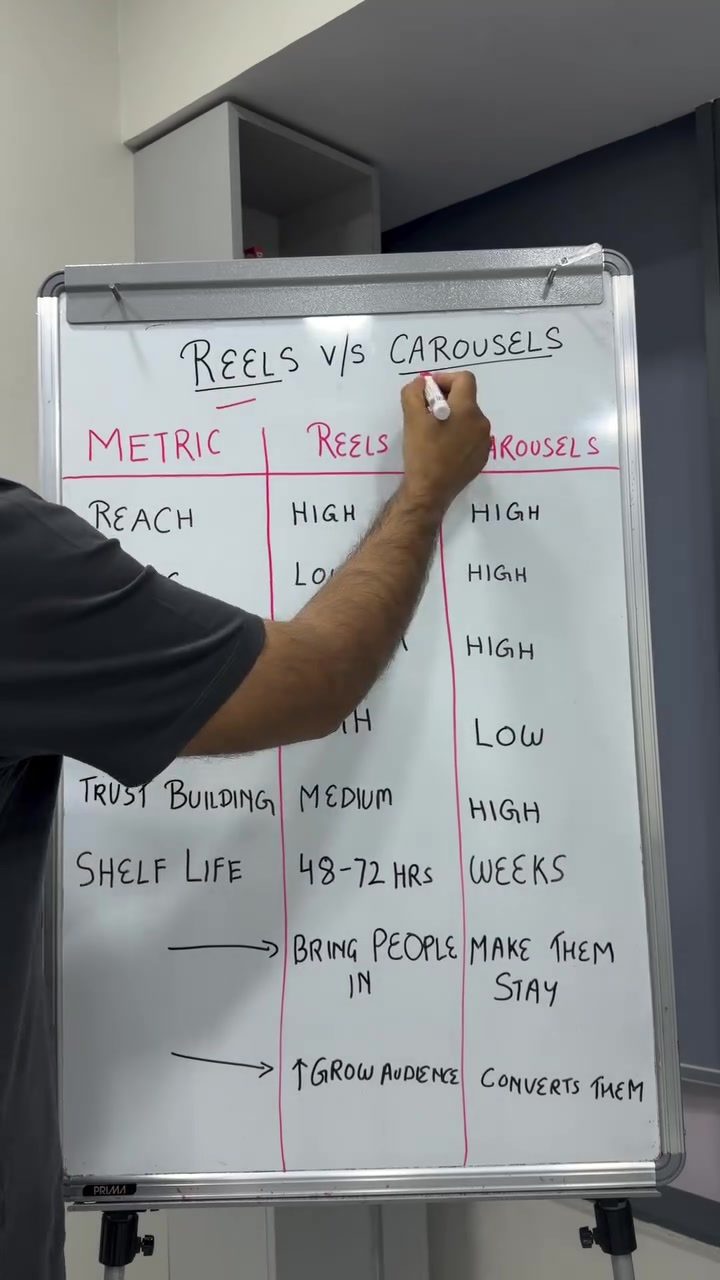 REELS V/S CAROUSELS
METRIC REELS AROUSELS
REACH HIGH HIGH
HIGH
HIGH
LOW
TRUST BUILDING MEDIUM HIGH
SHELF LIFE 48-72 HRS WEEKS
→ BRING PEOPLE IN MAKE THEM STAY
→ ↑GROW AUDIENCE CONVERTS THEM
PRIMA